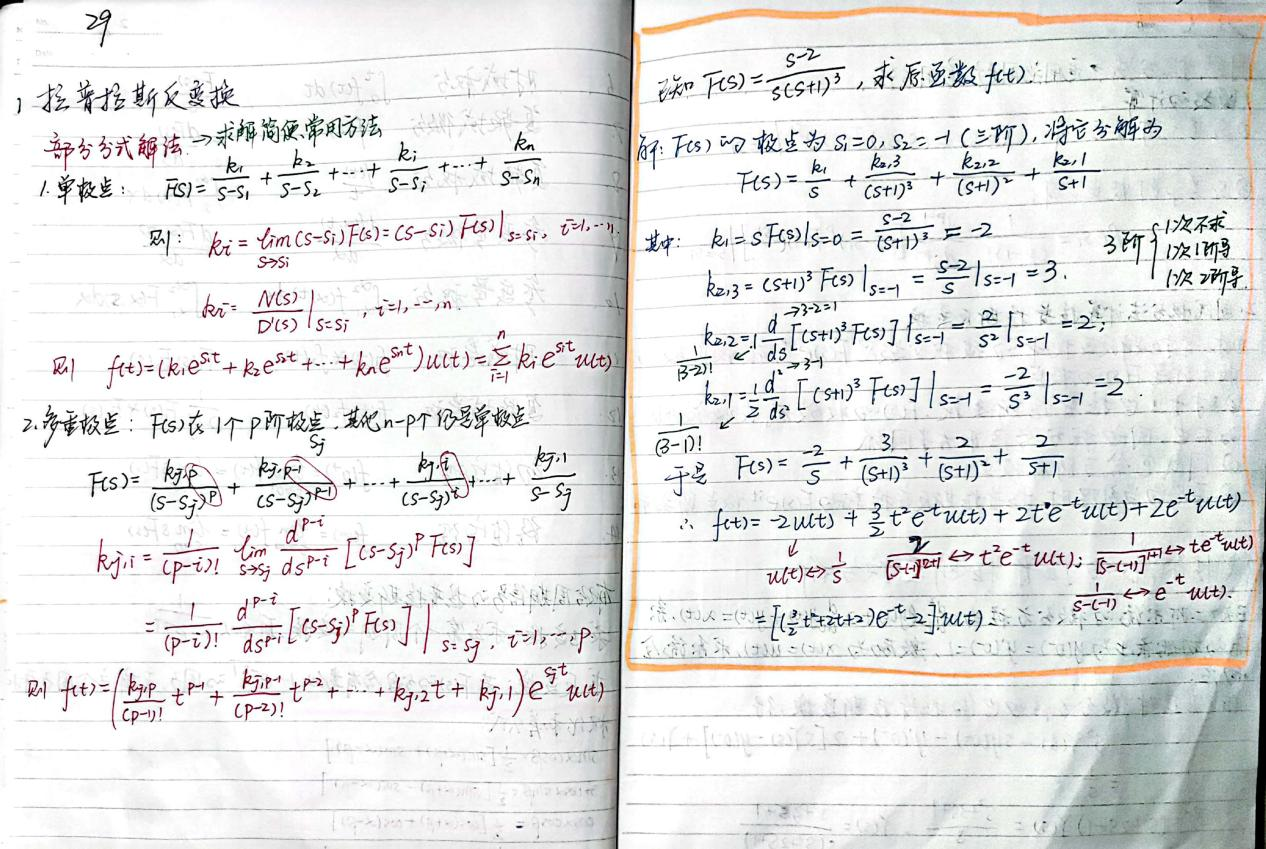 29
1 拉普拉斯反变换
部分分式解法 → 求解简便,常用方法
1. 单极点: F(s) = k₁/(s-s₁) + k₂/(s-s₂) + ⋯ + kᵢ/(s-sᵢ) + ⋯ + kₙ/(s-sₙ)
则: kᵢ = lim_{s→sᵢ} (s-sᵢ)F(s) = (s-sᵢ)F(s)|_{s=sᵢ}, i=1,⋯n.
kᵢ = N(s)/D'(s)|_{s=sᵢ}, i=1,⋯,n.
则 f(t) = (k₁e^{s₁t} + k₂e^{s₂t} + ⋯ + kₙe^{sₙt})u(t) = Σ_{i=1}^{n} kᵢe^{sᵢt}u(t)
2. 多重极点: F(s)在1个p阶极点, 其他n-p个仍是单极点
s_j
F(s) = k_{j,p}/(s-s_j)^p + k_{j,p-1}/(s-s_j)^{p-1} + ⋯ + k_{j,i}/(s-s_j)^i + ⋯ + k_{j,1}/(s-s_j)
k_{j,i} = 1/(p-i)! lim_{s→s_j} d^{p-i}/ds^{p-i} [(s-s_j)^p F(s)]
= 1/(p-i)! d^{p-i}/ds^{p-i} [(s-s_j)^p F(s)]|_{s=s_j}, i=1,⋯,p.
则 f(t) = (k_{j,p}/(p-1)! t^{p-1} + k_{j,p-1}/(p-2)! t^{p-2} + ⋯ + k_{j,2}t + k_{j,1})e^{s_jt}u(t)
已知 F(s) = (s-2)/(s(s+1)³), 求原函数 f(t).
解: F(s)的极点为 s₁=0, s₂=-1(三阶), 将它分解为
F(s) = k₁/s + k_{2,3}/(s+1)³ + k_{2,2}/(s+1)² + k_{2,1}/(s+1)
其中: k₁ = sF(s)|_{s=0} = (s-2)/(s+1)³ = -2
3阶 { 1次不求
1次1阶导
1次2阶导
k_{2,3} = (s+1)³F(s)|_{s=-1} = (s-2)/s|_{s=-1} = 3.
→3-2=1
k_{2,2} = 1 d/ds [(s+1)³F(s)]|_{s=-1} = 2/s²|_{s=-1} = 2;
1/(3-2)! ↙
→3-1
k_{2,1} = 1/2 d²/ds² [(s+1)³F(s)]|_{s=-1} = -2/s³|_{s=-1} = 2.
1/(3-1)! ↙
于是 F(s) = -2/s + 3/(s+1)³ + 2/(s+1)² + 2/(s+1)
∴ f(t) = -2u(t) + 3/2 t²e^{-t}u(t) + 2te^{-t}u(t) + 2e^{-t}u(t)
↓
u(t)↔1/s 2/[s-(-1)]^{2+1} ↔ t²e^{-t}u(t); 1/[s-(-1)]^{1+1} ↔ te^{-t}u(t)
1/(s-(-1)) ↔ e^{-t}u(t).
= [(3/2 t²+2t+2)e^{-t}-2]u(t)